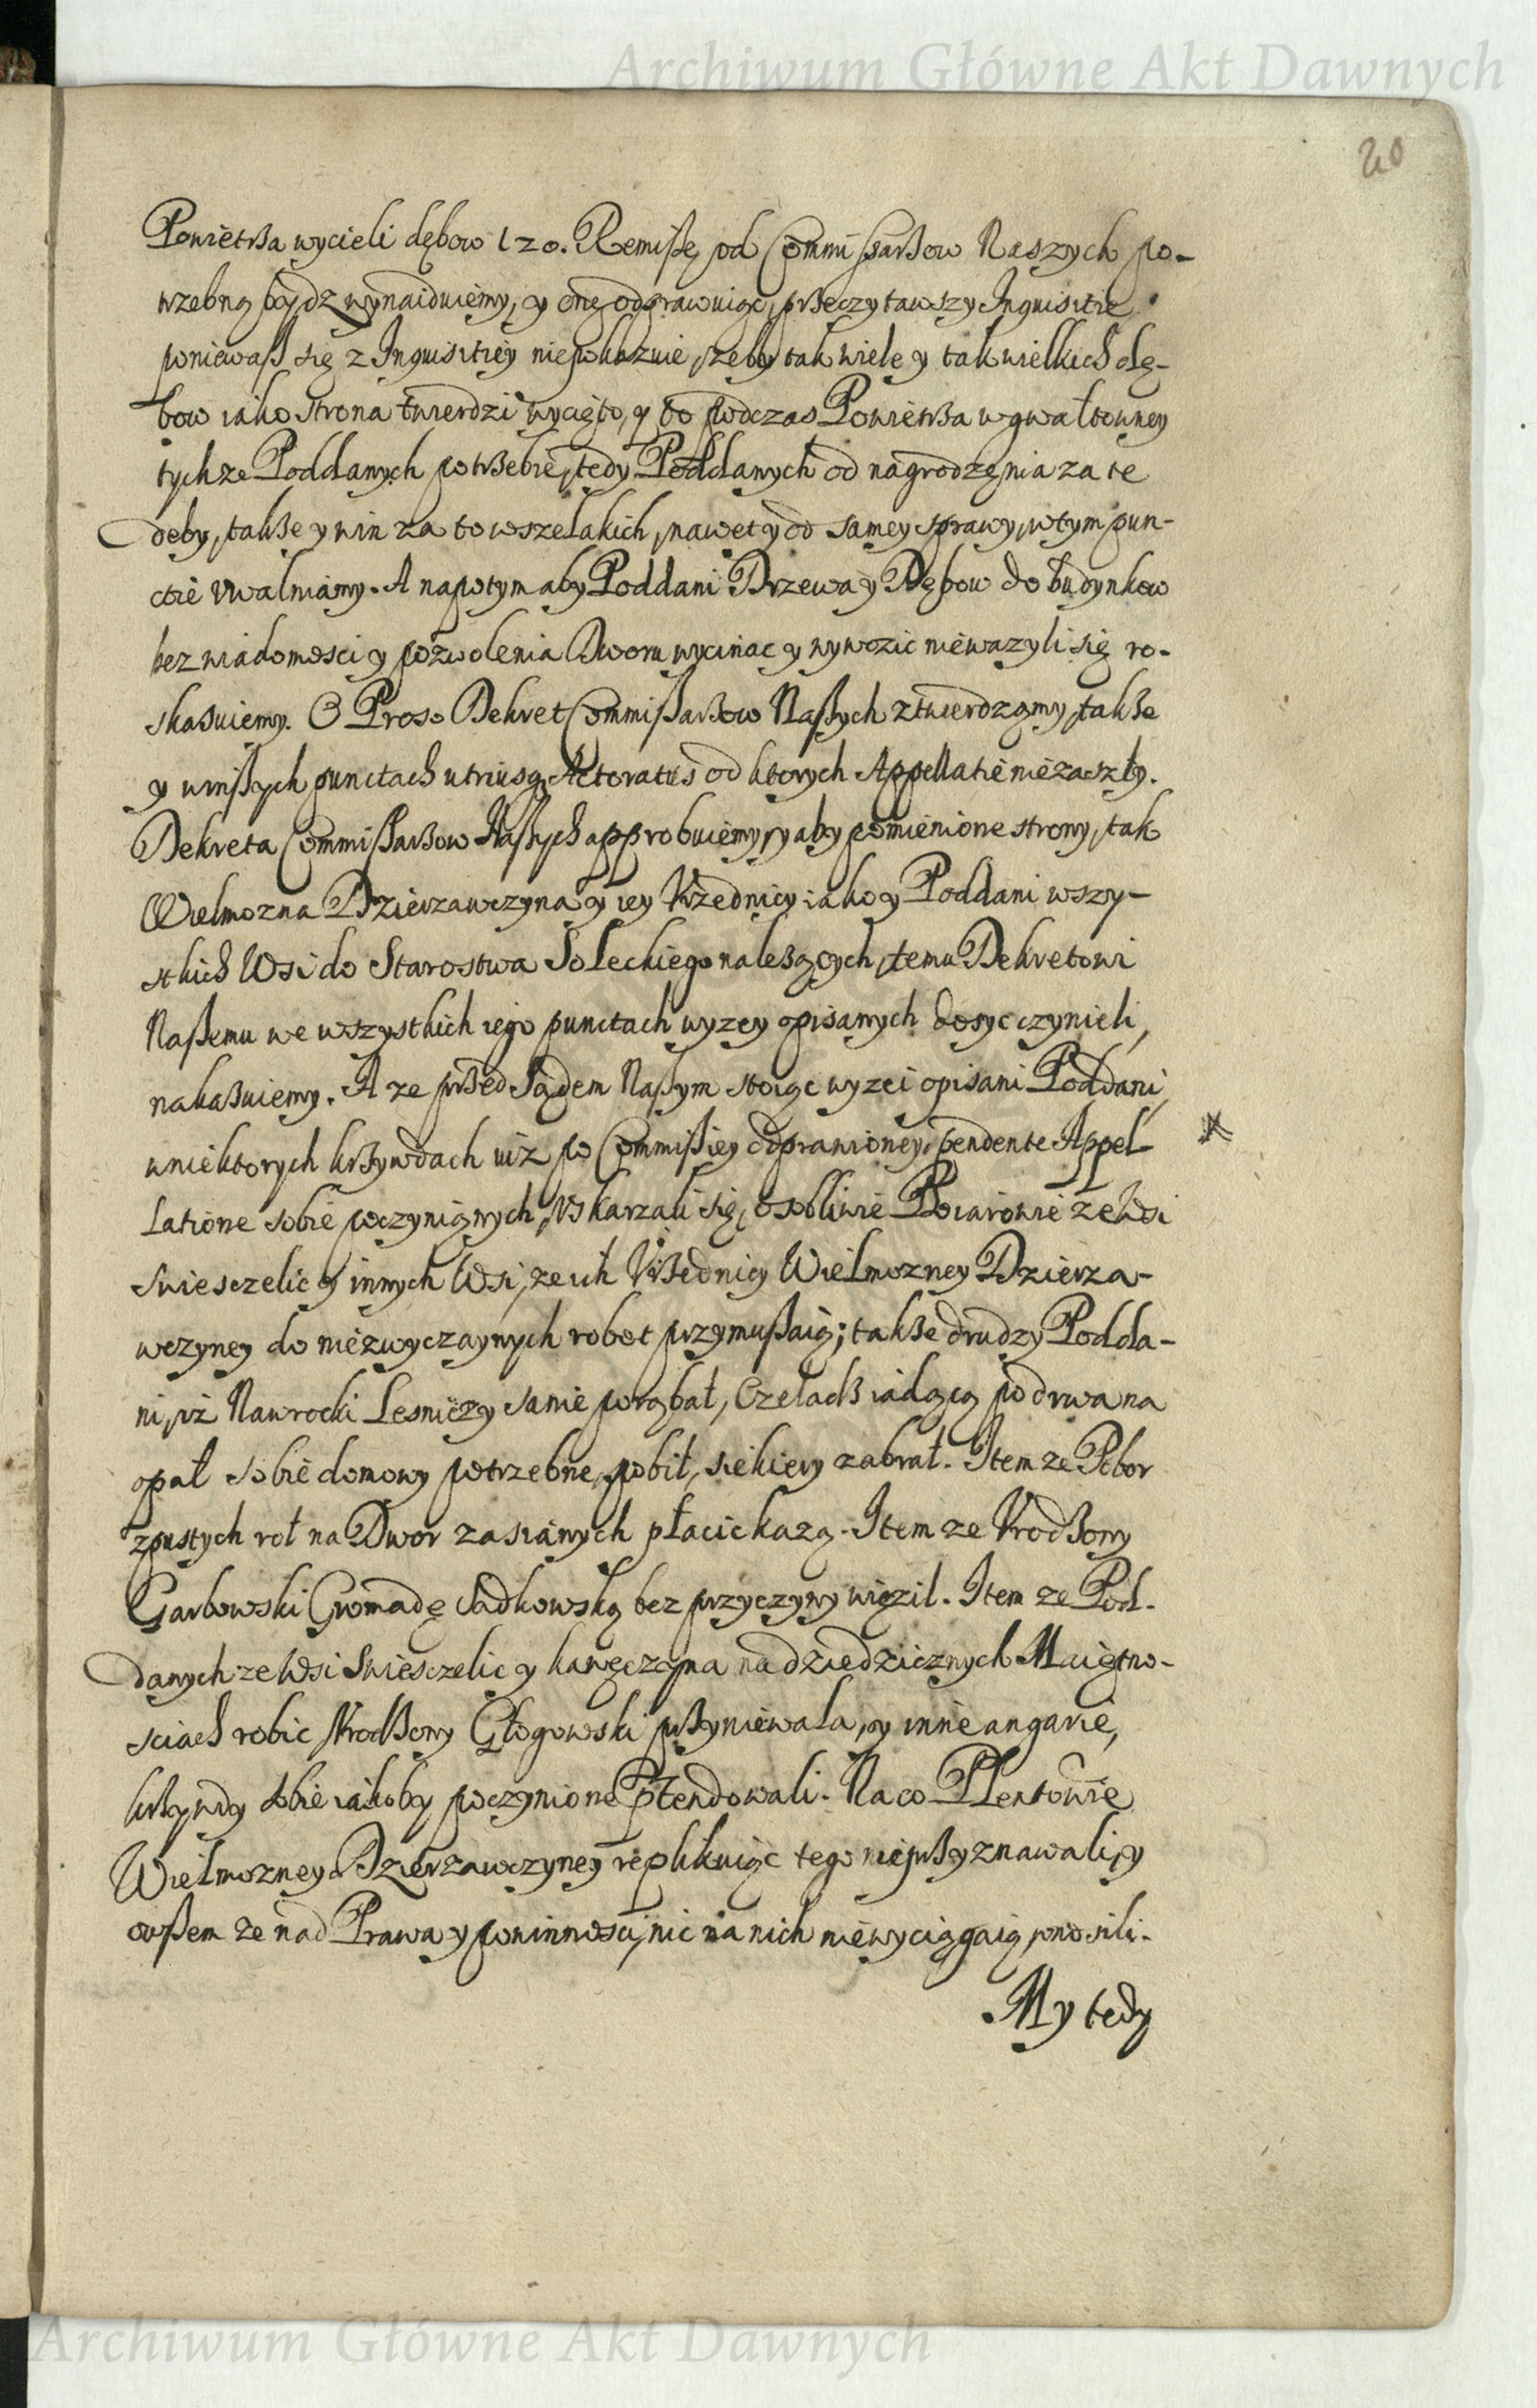 Archiwum Główne Akt Dawnych
20
Powietrza wycieli dębow 120. Remissę od Commissarzow Naszych po-
trzebną bydz wynaiduiemy, y onę odprawuiąc, przeczytawszy Inquisitie
poniewasz się z Inquisitiey niepokazuie, zeby tak wiele y tak wielkich dę-
bow iako strona twierdzi wycięto, y to podczas Powietrza w gwałtowney
tychze Poddanych potrzebie, tedy Poddanych od nagrodzęnia za te
deby, takze y win za to wszelakich, nawet y od samey sprawy, w tym pun-
ctie uwalniamy. A napotym aby Poddani Drzewa y Dębow do budynkow
bez wiadomosci y pozwolenia Dworu wycinac y wywozic niewazyli się ro-
skazuiemy. O Proso Dekret Commissarzow Naszych ztwierdzamy, takze
y w inszych punctach utriusq Actoratus od ktorych Appellatie niezaszły.
Dekreta Commissarzow Naszych approbuiemy, y aby pomienione strony, tak
Wielmozna Dzierzawczyna y iey Urzednicy iako y Poddani wszy-
stkich Wsi do Starostwa Soleckiego nalezących, temu Dekretowi
Naszemu we wszystkich iego punctach wyzey opisanych dosyc czynieli,
nakazuiemy. A ze przed Sądem Naszym stoiąc wyzei opisani Poddani,
w niektorych krzywdach iuz po Commissiey odprawioney, pendente Appel-
latione sobie poczynionych, Uskarzali się, osobliwie Pociarowie ze Wsi
Swiesczelic y innych Wsi, ze ich Urzednicy Wielmozney Dzierza-
wczyney do niezwyczaynych robot przymuszaią; takze drudzy Podda-
ni, iz Nawrocki Lesniczy sanie porąbał, Czeladz iadącą po drwa na
opał sobie domowy potrzebne, pobił, siekiery zabrał. Item ze Pobor
z pustych rol na Dwor zasianych płacic kazą. Item ze Urodzony
Garbowski Gromadę Sadkowską bez przyczyny więzil. Item ze Pod-
danych ze Wsi Swiesczelic y Kawęczyna na dziedzicznych Maiętno-
sciach robic Urodzony Głogowski przyniewala, y inne angarie,
krzywdy sobie iakoby poczynione Ptendowali. Na co Plentowie
Wielmozney Dzierzawczyney replikuiąc tego nieprzyznawali, y
owszem ze nad Prawa y powinnosci, nic na nich niewyciągaią wnosili.
My tedy
Archiwum Główne Akt Dawnych